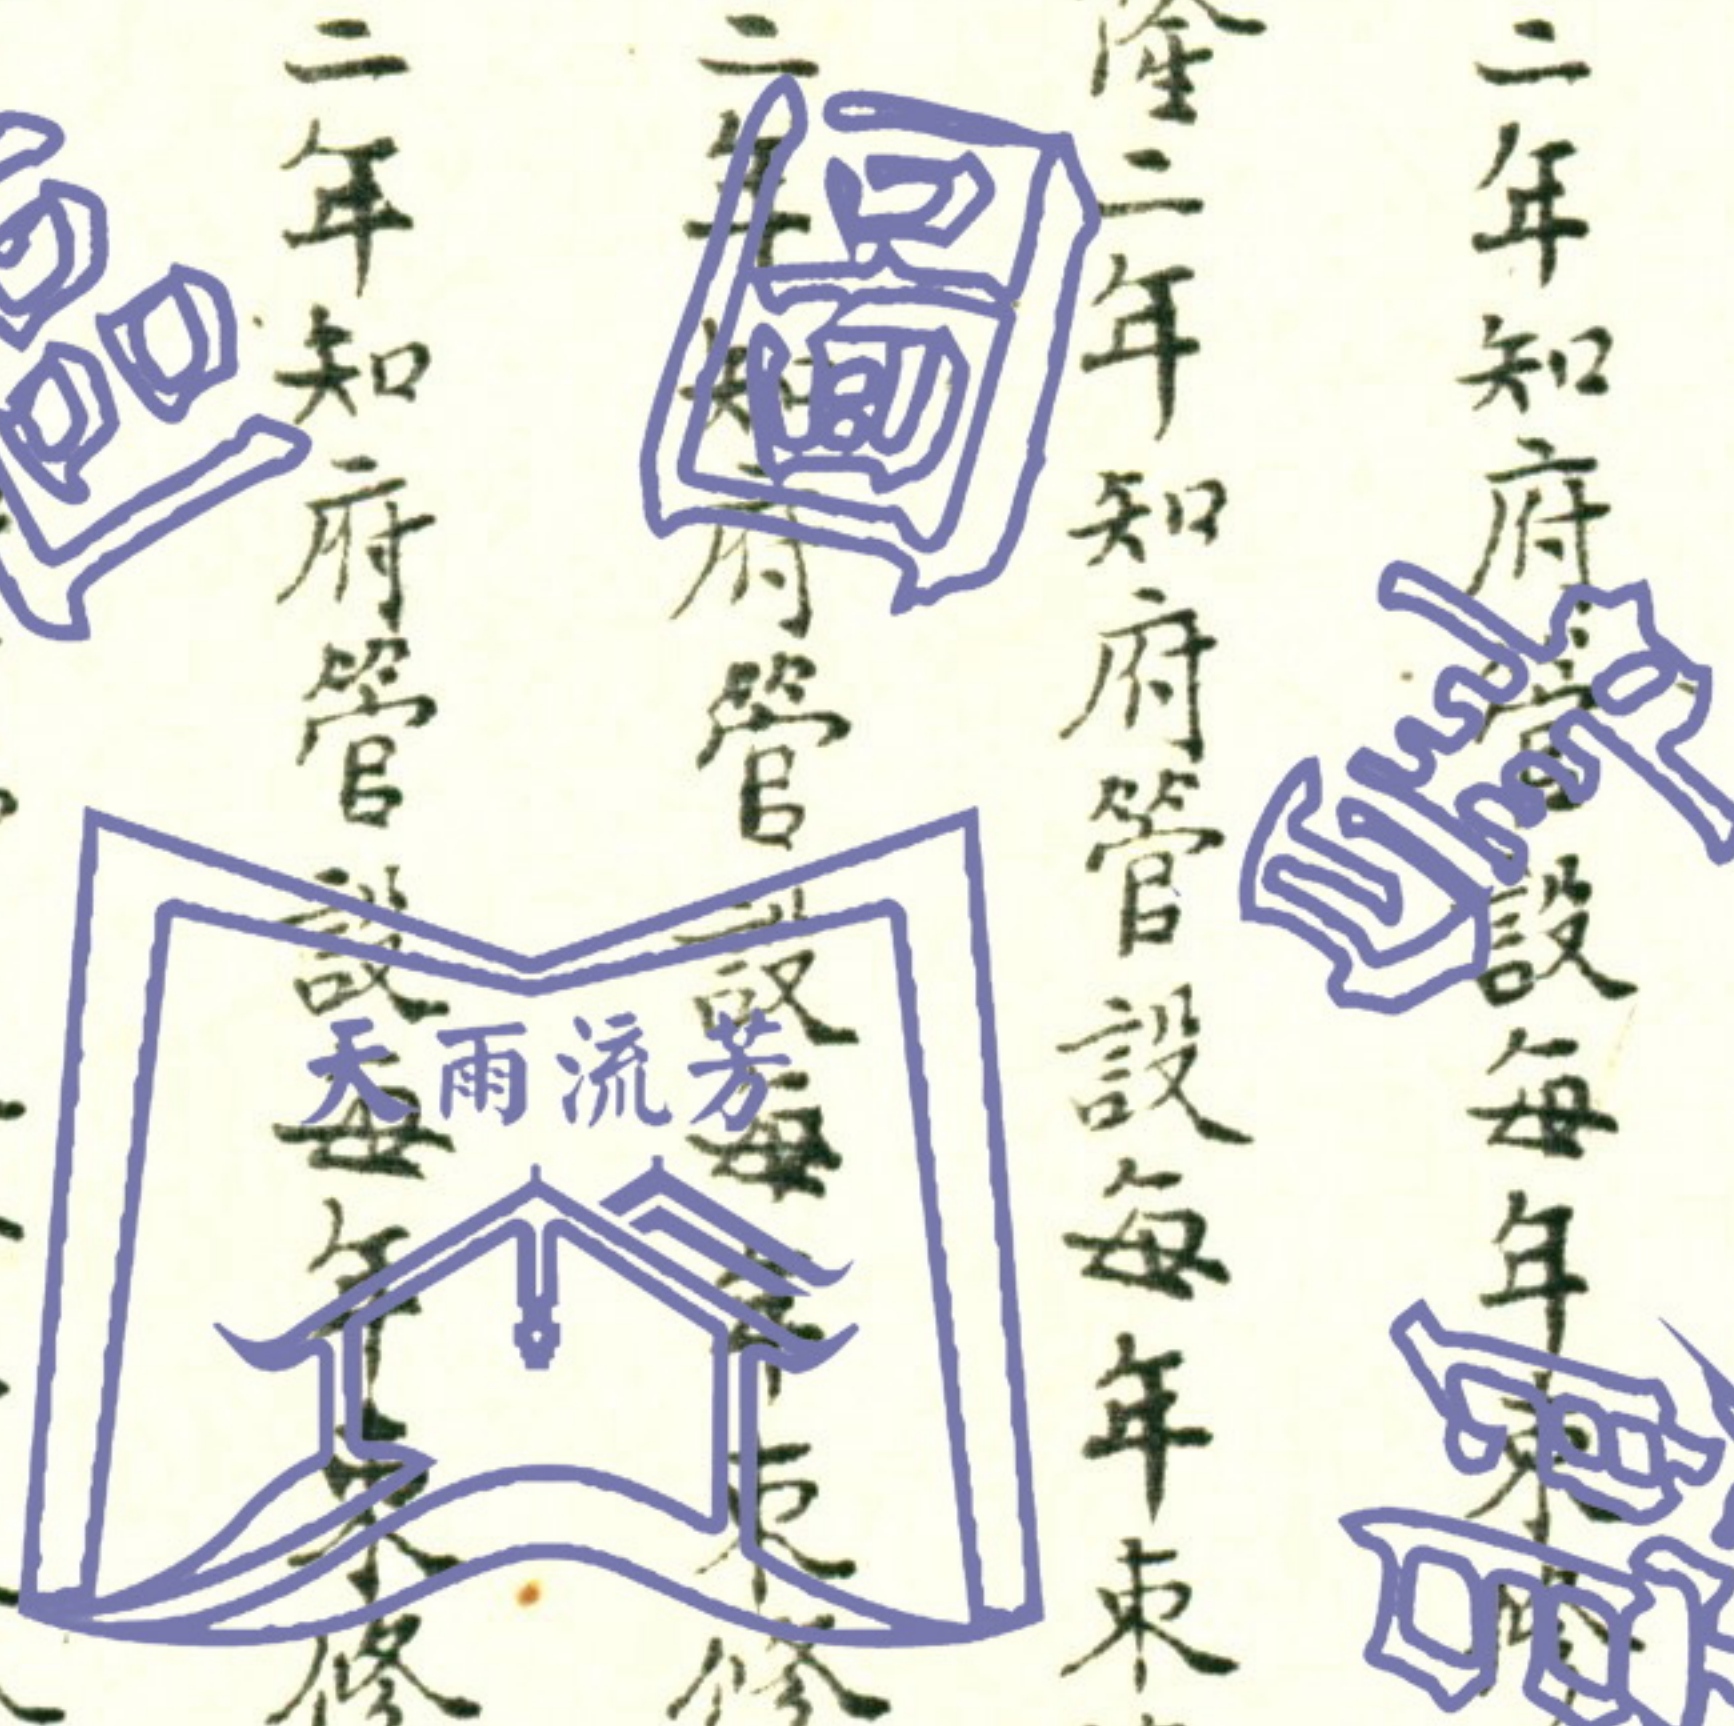 二年知府管設每年束修
隆二年知府管設每年束
二年知府管設每年束修
二年知府管設每年束修
天雨流芳
圖
書